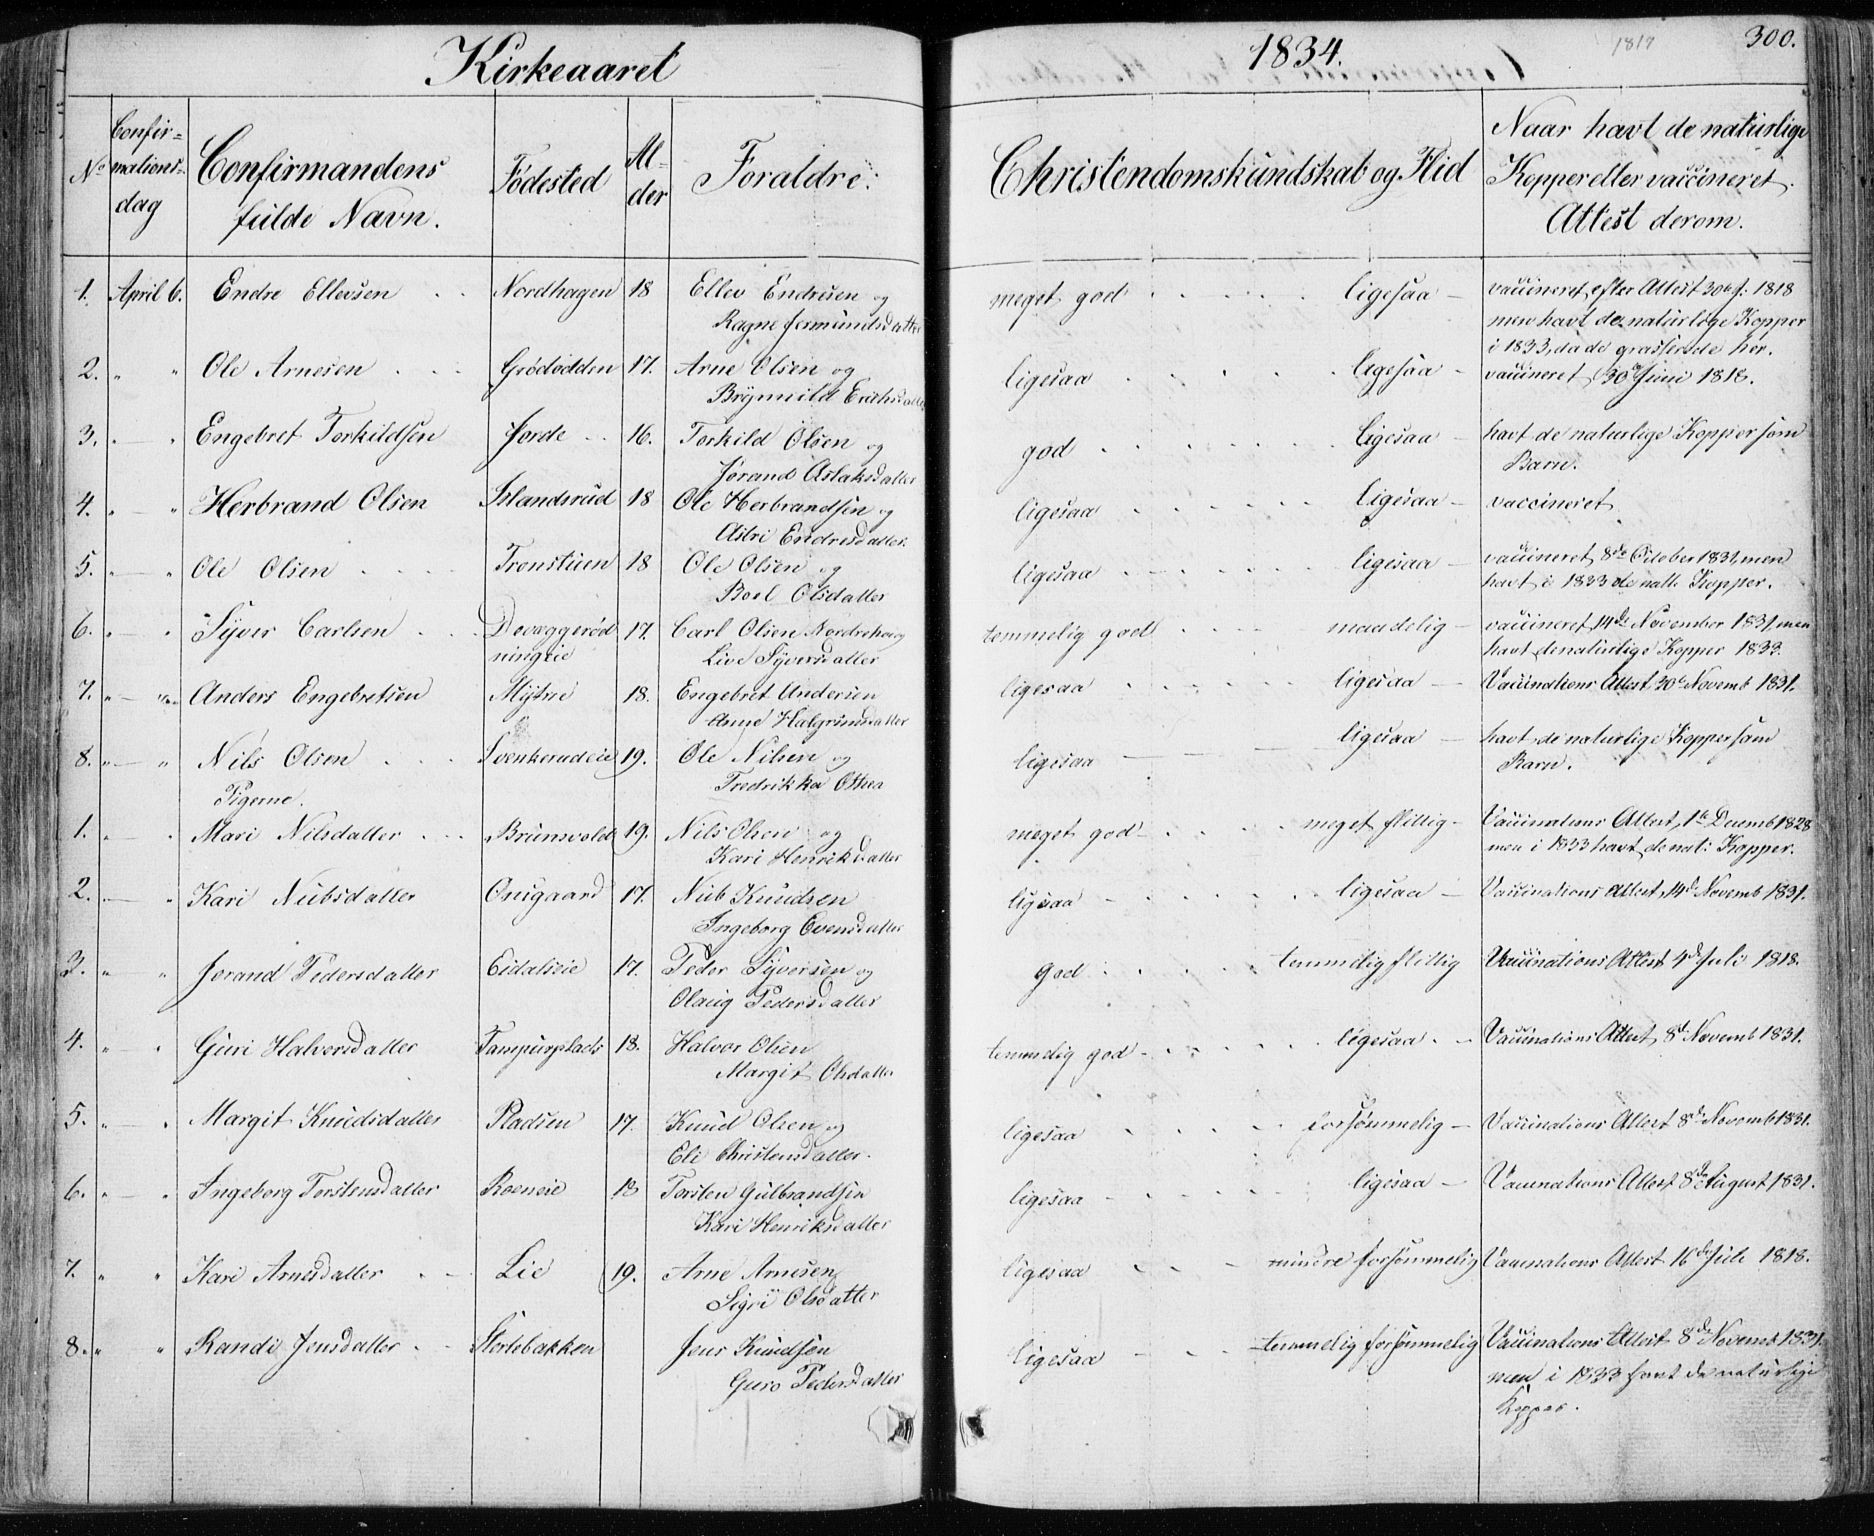 Kirkeaaret 1834. 1817 300.
No
Confir=
mations=
dag
Confirmandens
fulde Navn.
Fødested
Al-
der
Forældre.
Christendomskundskab og Flid
Naar havt de naturlige
Kopper eller vaccineret.
Attest derom.
1. April 6. Endre Ellevsen Nordhagen 18 Ellev Endresen og meget god ligesaa vaccineret efter Attest 30te J. 1818
Ragne Jermundsdatter men havt de naturlige Kopper
i 1833, da de grasserede her.
2. " " Ole Arnesen 17. Arne Olsen og ligesaa ligesaa vaccineret 30te Juni 1818.
Brynnild Erichsdatter
3. " " Engebret Torkildsen Jorde 16. Torkild Olsen og god ligesaa havt de naturlige Kopper som
Jørand Aslaksdatter Barn.
4. " " Herbrand Olsen Islandsrud 18 Ole Herbrandsen og ligesaa ligesaa vaccineret
Astri Endresdatter.
5. " " Ole Olsen Tronstuen 18 Ole Olsen og ligesaa ligesaa vaccineret 8de October 1831, men
Boel Olsdatter havt i 1833 de natl. Kopper.
6. " " Syver Carlsen 17. Carl Olsen temmelig god maadelig vaccineret 14de November 1831, men
ningeie Live Syversdatter havt de naturlige Kopper 1833.
7. " " Anders Engebretsen Mytne 18. Engebret Andersen ligesaa ligesaa Vaccinations Attest 30te Novemb 1831.
Anne Halgrimsdatter
8. " " Nils Olsen Svenkerudeie 19. Ole Nilsen og ligesaa ligesaa havt de naturlige Kopper som
Fredrikka Othea Barn.
Pigerne.
1. " " Mari Nilsdatter Brunsvold 19. Nils Olsen og meget god meget flittig Vaccinations Attest, 1te Decemb 1828
Kari Henriksdatter men i 1833 havt de nat: Kopper.
2. " " Kari Nubsdatter Onsgaard 17. Nub Knudsen ligesaa ligesaa Vaccinations Attest, 14de Novemb 1831.
Ingeborg Evensdatter
3. " " Jørand Pedersdatter Eidalseie 17. Peder Syversen og god temmelig flittig Vaccinations Attest 4de Juli 1818.
Olaug Pedersdatter
4. " " Guri Halvorsdatter 18. Halvor Olsen temmelig god ligesaa Vaccinations Attest 8de Novemb 1831.
Margit Olsdatter
5. " " Margit Knudsdatter Pladsen 17. Knud Olsen og ligesaa forsømmelig Vaccinations Attest 8de Novemb 1831.
Eli Christensdatter.
6. " " Ingeborg Torstensdatter Roeneie 18 Torsten Gulbrandsen ligesaa ligesaa Vaccinations Attest 8de August 1831.
Kari Henriksdatter
7. " " Kari Arnesdatter Lie 19. Arne Arnesen ligesaa mindre forsømmelig Vaccinations Attest 16de Juli 1818.
Sigri Olsdatter
8. " " Randi Jensdatter Stortebakken Jens Knudsen ligesaa temmelig forsømmelig Vaccinations Attest 8de Novemb 1831.
Guro Pedersdatter men i 1833 havt de naturlige
Kopper.